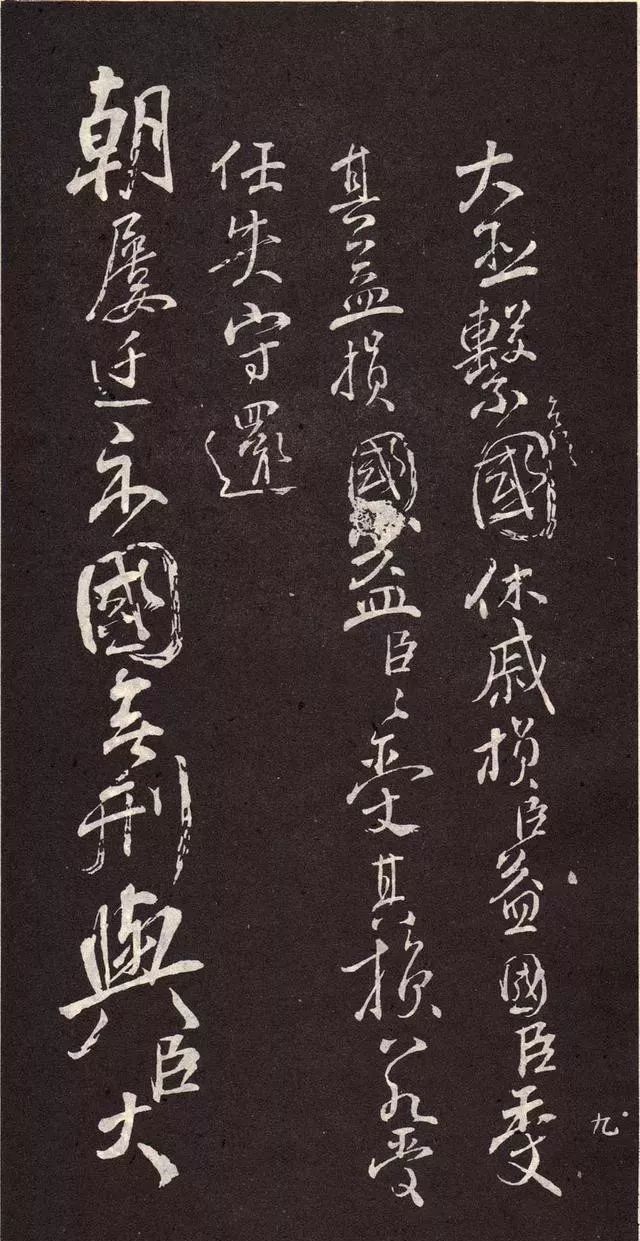 大繫國休戚損臣益國臣受
其益損國益臣〻受其損受
任失守還
朝屢迁示國無刑與臣大
九